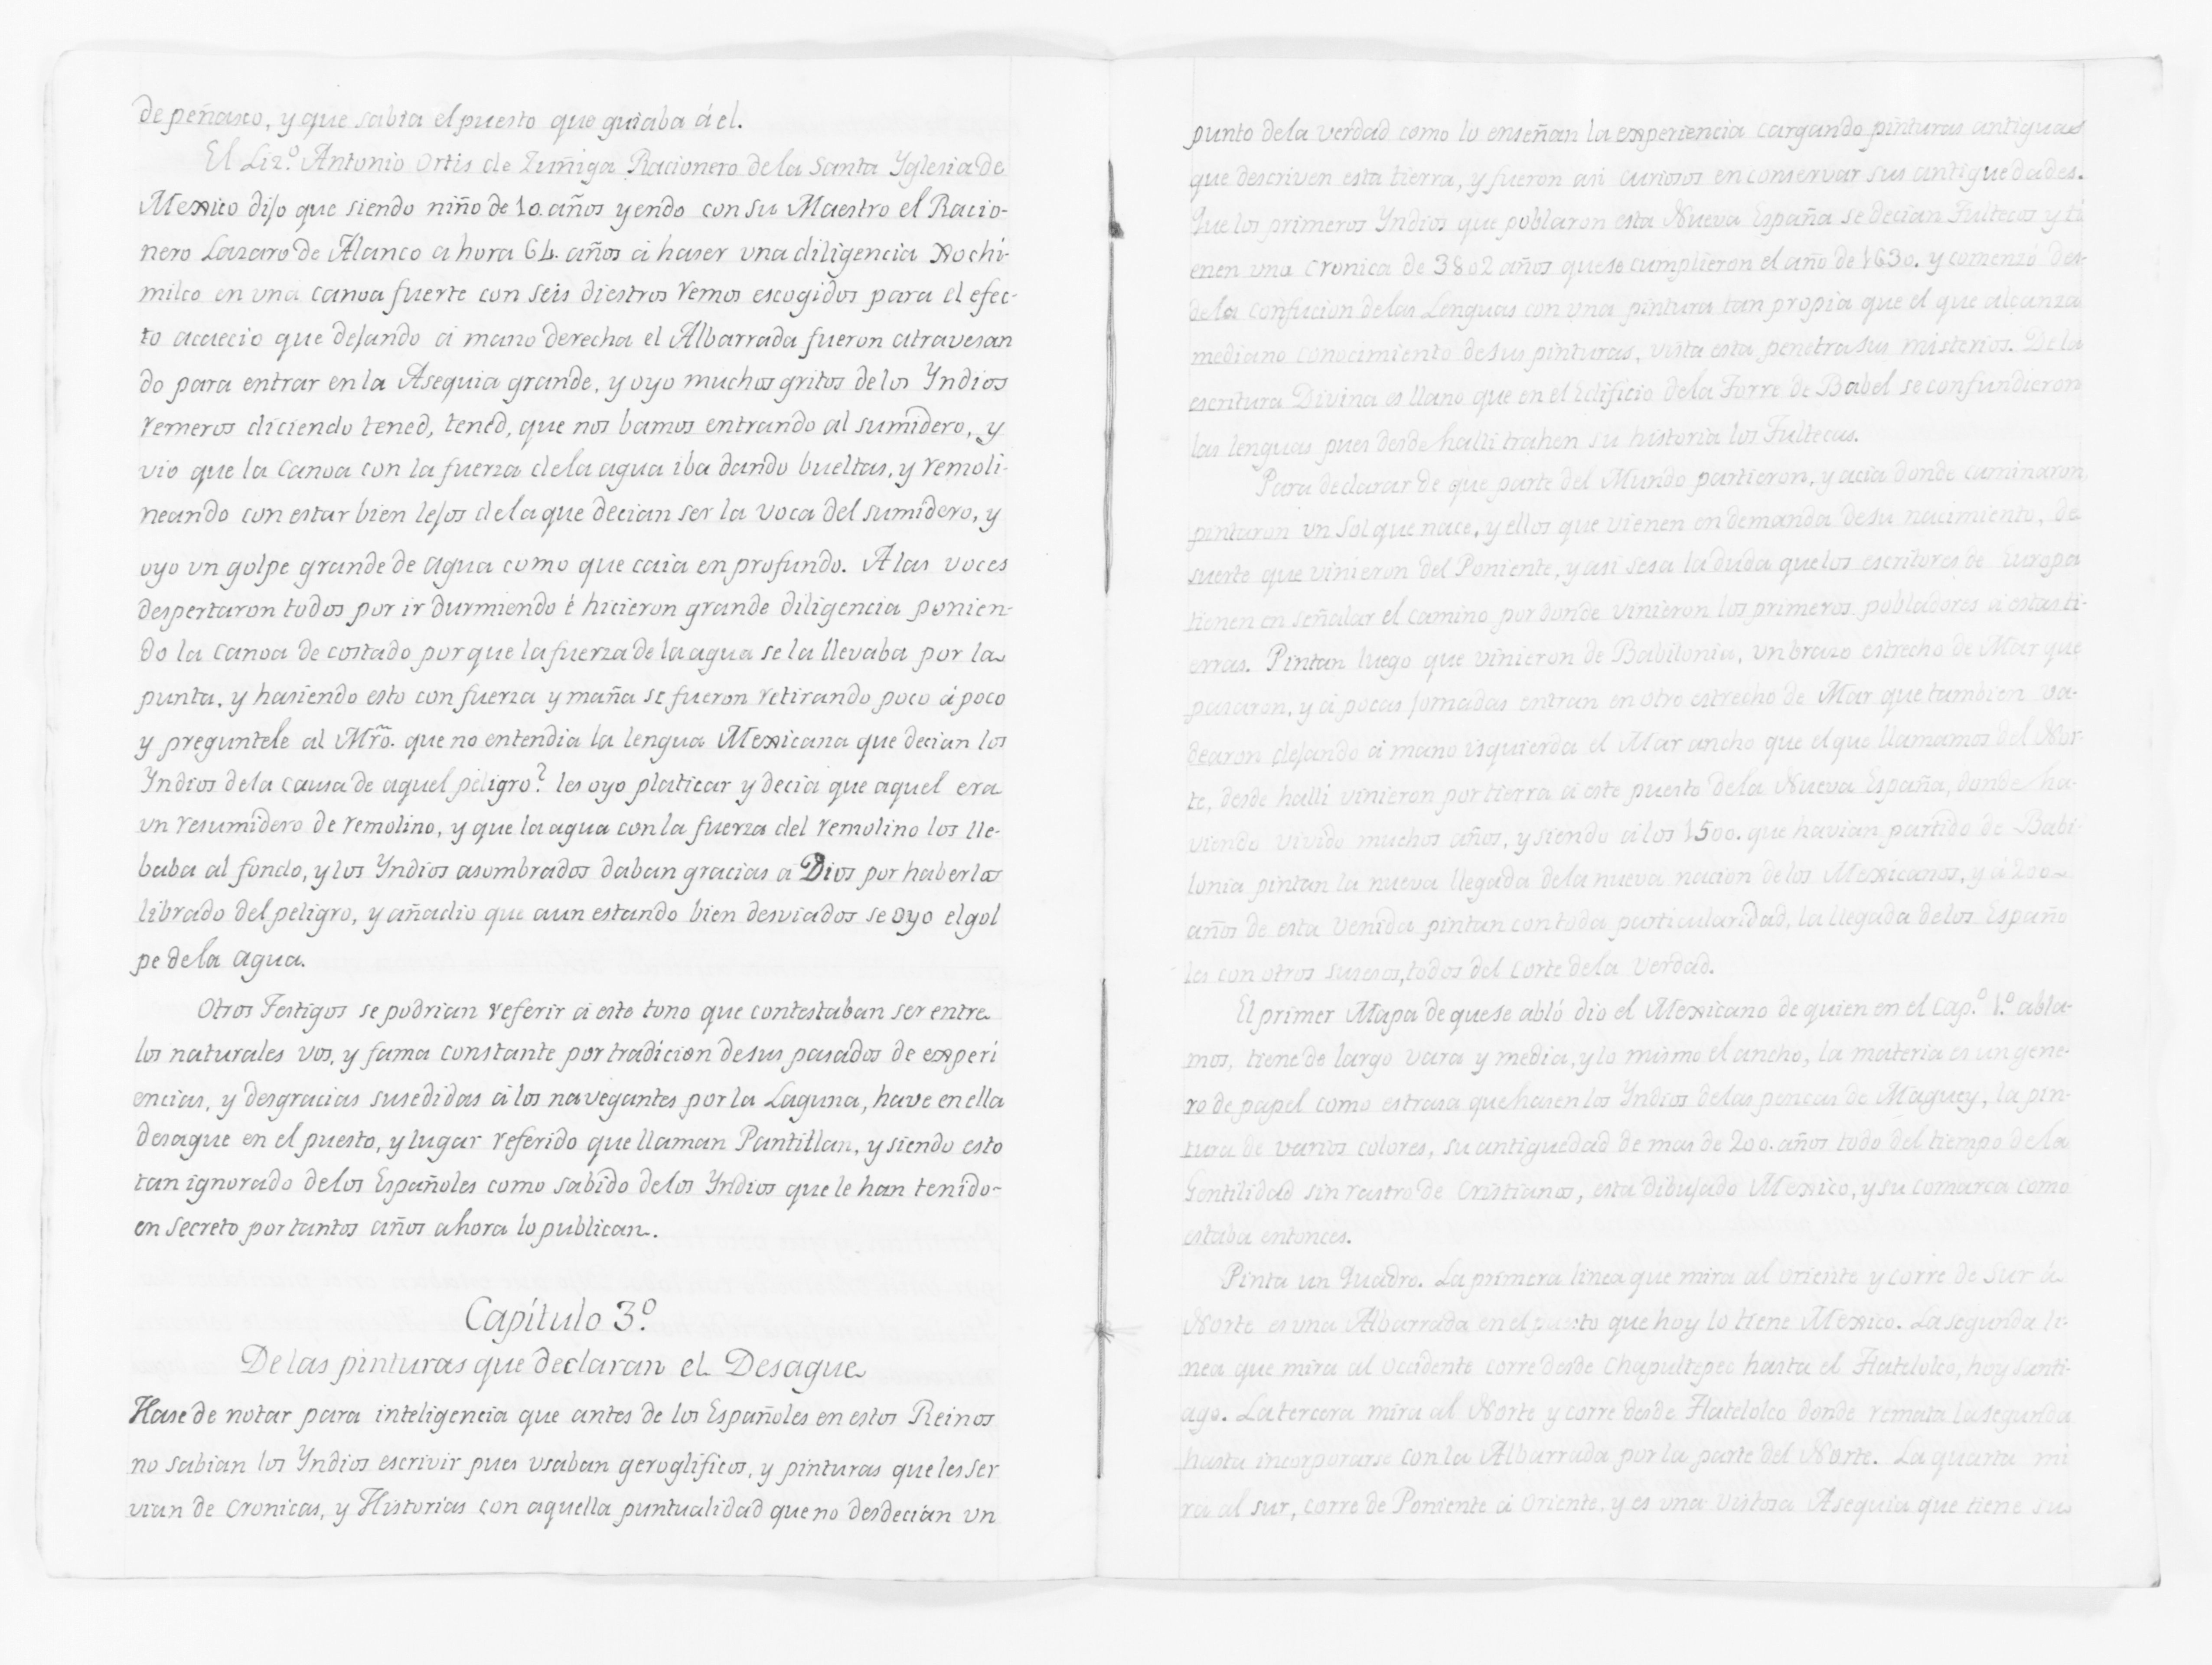 de peñasco, y que sabia el puesto que guiaba á el.
El Liz.º Antonio Ortis de Zuñiga Racionero de la Santa Yglesia de
Mexico dijo que siendo niño de 10. años yendo con su Maestro el Racio-
nero Lazaro de Alanco ahora 64. años á haser una diligencia Xochi-
milco en una canoa fuerte con seis diestros remos escogidos para el efec-
to acaecio que dejando á mano derecha el Albarrada fueron atravesan
do para entrar en la Asequia grande, y oyo muchos gritos de los Yndios
remeros diciendo tened, tened, que nos bamos entrando al sumidero, y
vio que la Canoa con la fuerza de la agua iba dando bueltas, y remoli-
neando con estar bien lejos de la que decian ser la voca del sumidero, y
oyo un golpe grande de agua como que caia en profundo. A las voces
despertaron todos por ir durmiendo é hicieron grande diligencia ponien-
do la canoa de costado porque la fuerza de la agua se la llevaba por la
punta, y hasiendo esto con fuerza y maña se fueron retirando poco á poco
y preguntele al Mrõ. que no entendia la lengua Mexicana que decian los
Yndios de la causa de aquel peligro? les oyo platicar y decia que aquel era
un resumidero de remolino, y que la agua con la fuerza del remolino los lle-
baba al fondo, y los Yndios asombrados daban gracias á Dios por haberlos
librado del peligro, y añadio que aun estando bien desviados se oyo el gol
pe de la agua.
Otros Testigos se podrian referir á este tono que contestaban ser entre
los naturales vos, y fama constante por tradicion de sus pasados de experi
encias, y desgracias susedidas á los navegantes por la Laguna, have en ella
desague en el puesto, y lugar referido que llaman Pantitlan, y siendo esto
tan ignorado de los Españoles como sabido de los Yndios que le han tenido-
en secreto por tantos años ahora lo publican.
Capítulo 3.º
De las pinturas que declaran el Desague
Hase de notar para inteligencia que antes de los Españoles en estos Reinos
no sabian los Yndios escrivir pues usaban geroglificos, y pinturas que les ser
vian de Cronicas, y Historias con aquella puntualidad que no desdecian un
punto de la verdad como lo enseñan la experiencia cargando pinturas antiguas
que descriven esta tierra, y fueron asi curiosos en conservar sus antiguedades.
Que los primeros Yndios que poblaron esta Nueva España se decian Tultecos y ti
enen una Cronica de 3802 años que se cumplieron el año de 1630. y comenzó des-
de la confucion de las Lenguas con una pintura tan propia que el que alcanza
mediano conocimiento de sus pinturas, vista esta penetra sus misterios. De la
escritura Divina es llano que en el Edificio de la Torre de Babel se confundieron
las lenguas pues desde halli trahen su historia los Tultecas.
Para declarar de que parte del Mundo partieron, y acia donde caminaron,
pintaron un Sol que nace, y ellos que vienen en demanda de su nacimiento, de
suerte que vinieron del Poniente, y asi sesa la duda que los escritores de Europa
tienen en señalar el camino por donde vinieron los primeros pobladores á estas ti-
erras. Pintan luego que vinieron de Babilonia, un brazo estrecho de Mar que
pasaron, y á pocas jornadas entran en otro estrecho de Mar que tambien va-
dearon dejando á mano isquierda el Mar ancho que el que llamamos del Nor-
te, desde halli vinieron por tierra á este puesto de la Nueva España, donde ha-
viendo vivido muchos años, y siendo á los 1500. que havian partido de Babi-
lonia pintan la nueva llegada de la nueva nacion de los Mexicanos, y á 200
años de esta venida pintan con toda particularidad, la llegada de los Españo
les con otros susesos, todos del corte de la verdad.
El primer Mapa de que se abló dio el Mexicano de quien en el Cap.º 1.º abla-
mos, tiene de largo vara y media, y lo mismo el ancho, la materia es un gene-
ro de papel como estrasa que hasen los Yndios de las pencas de Maguey, la pin-
tura de varios colores, su antiguedad de mas de 200. años todo del tiempo de la
Gentilidad sin rastro de Cristianos, esta dibujado Mexico, y su comarca como
estaba entonces.
Pinta un Quadro. La primera linea que mira al Oriente y corre de Sur á
Norte es una Albarrada en el puesto que hoy lo tiene Mexico. La segunda li-
nea que mira al Occidente corre desde Chapultepec hasta el Tlatelolco, hoy Santi-
ago. La tercera mira al Norte y corre desde Tlatelolco donde remata la segunda
hasta incorporarse con la Albarrada por la parte del Norte. La quarta mi
ra al sur, corre de Poniente á Oriente, y es una vistosa Asequia que tiene su